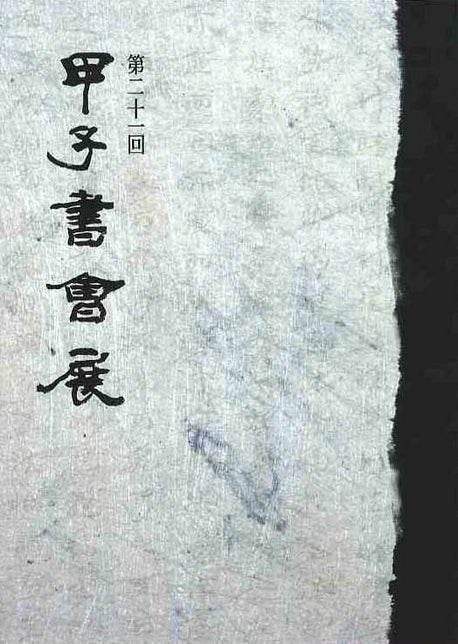 第二十一回
甲子書會展